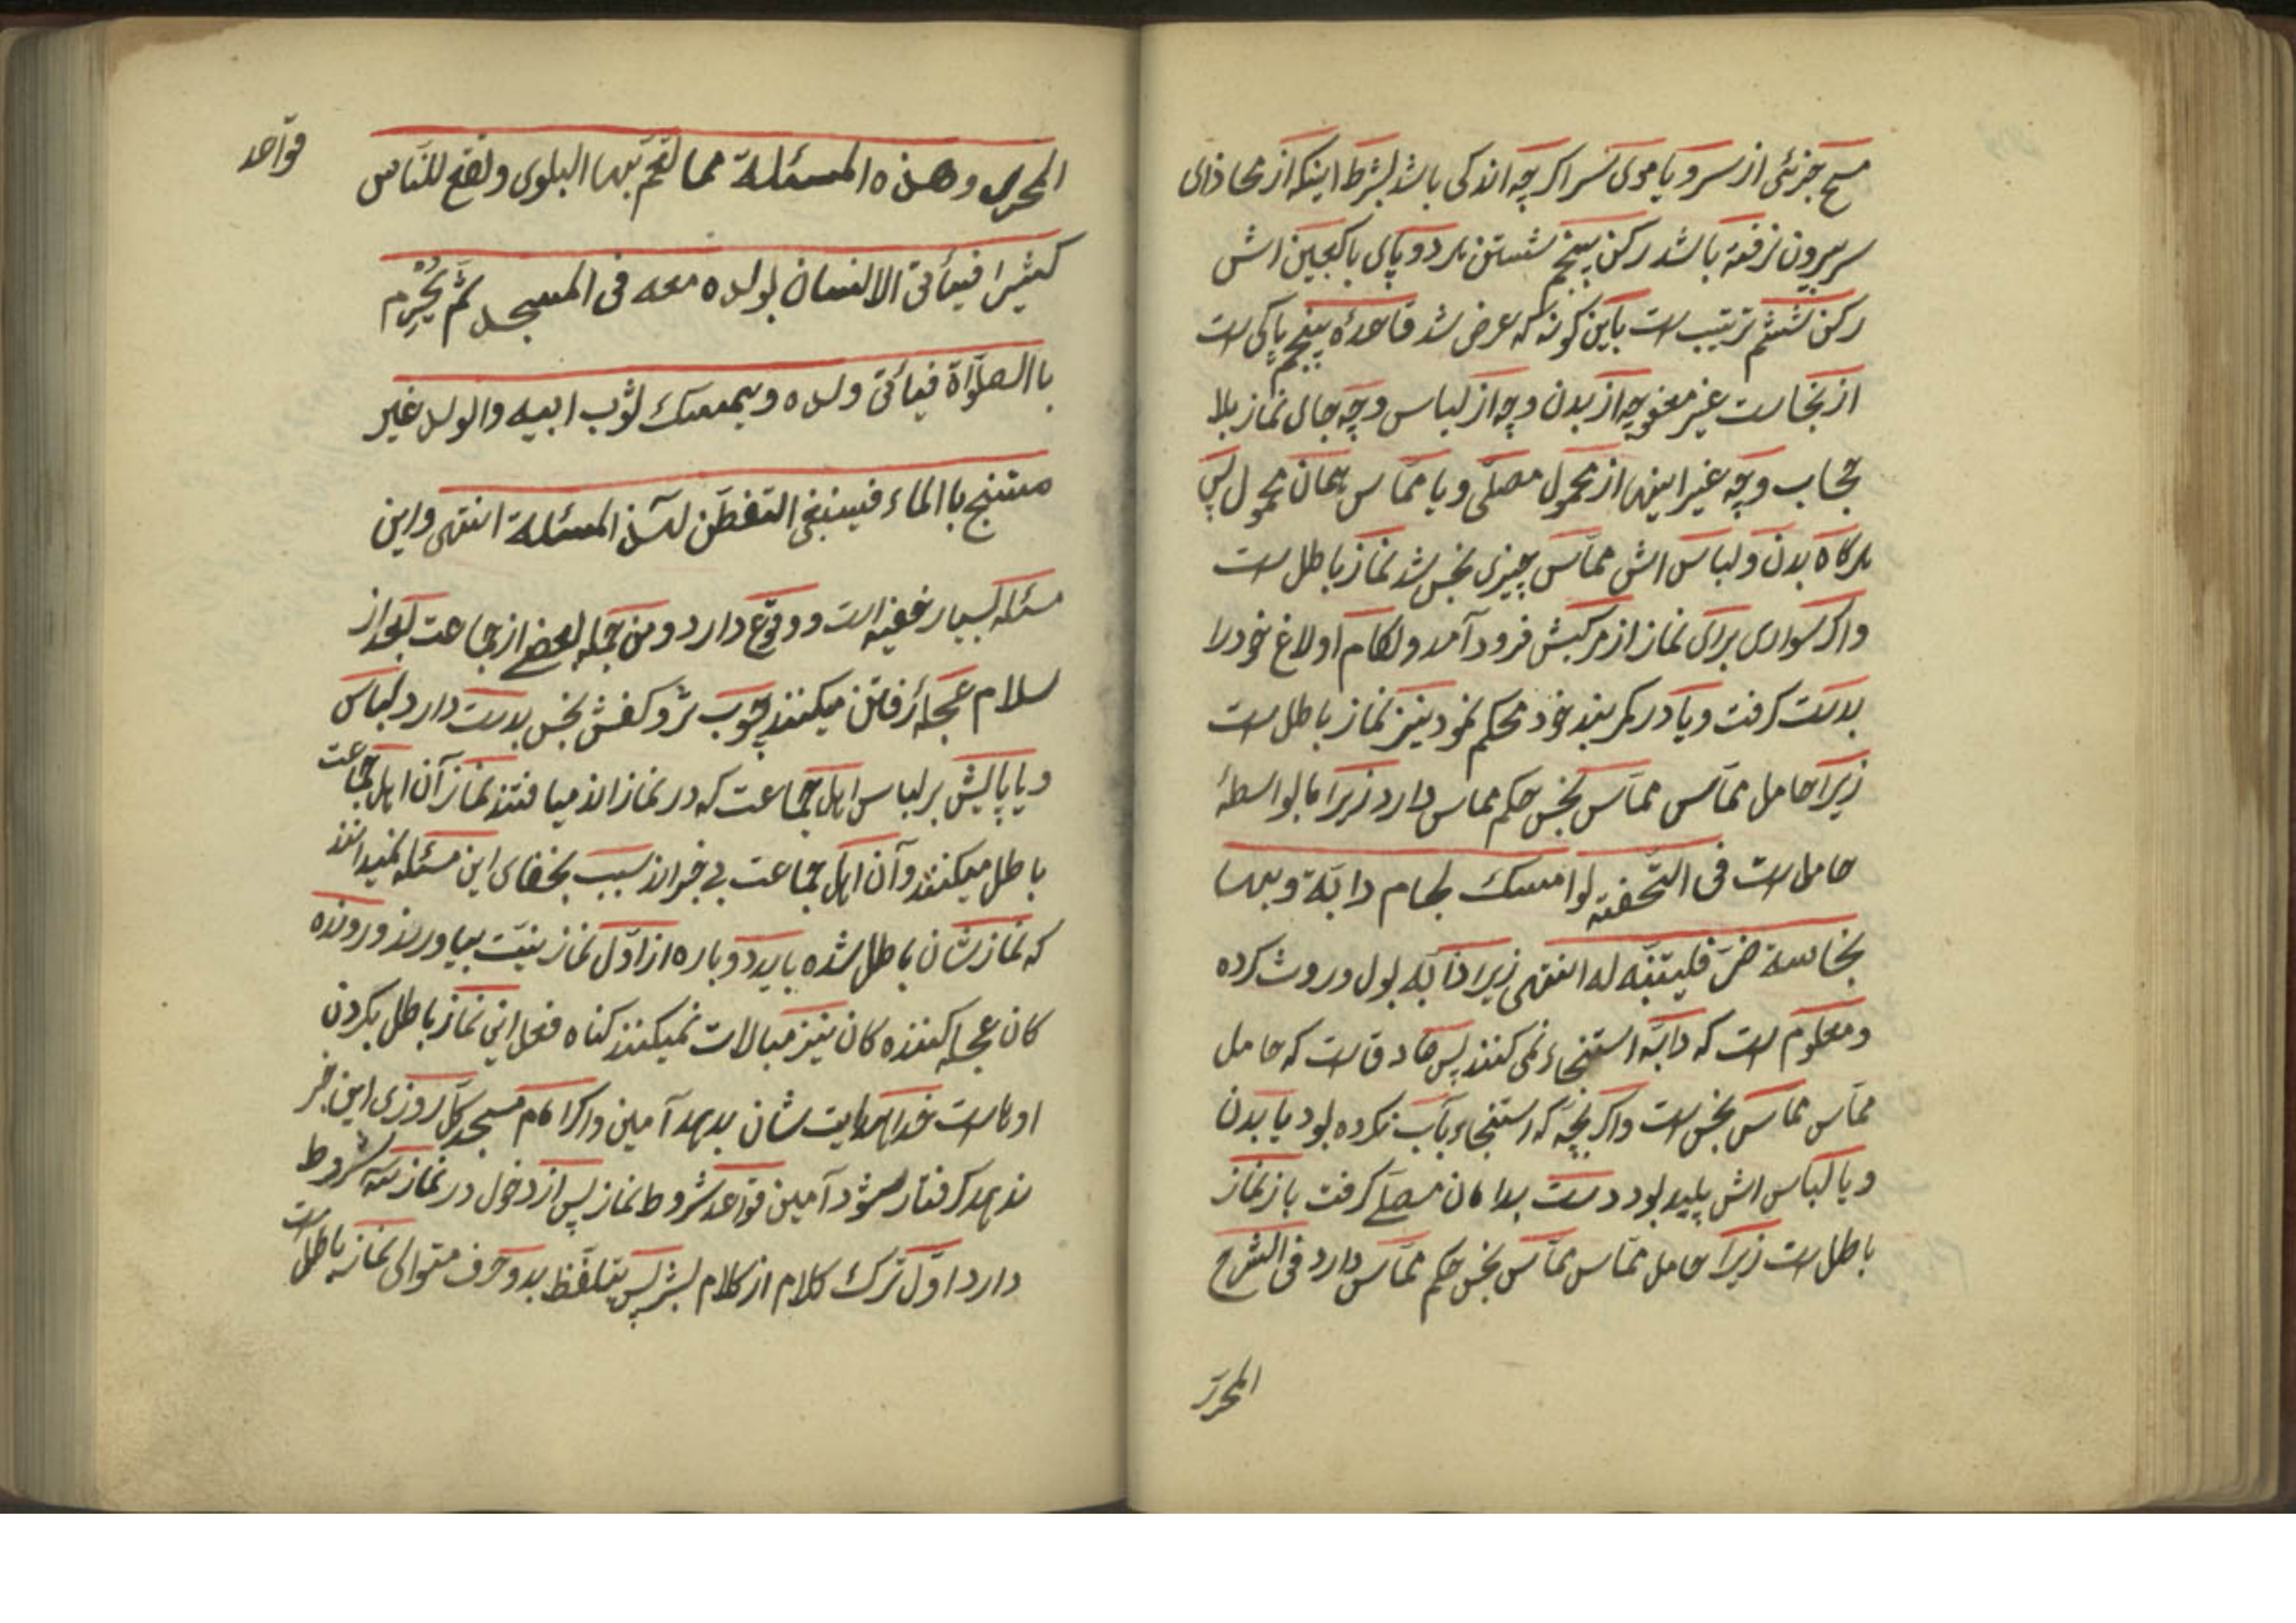 مسح جزئی از سر و یا موی سر اکر چه اندکی باشد بشرط اینکه از محاذای
سر بیرون نرفته باشد رکن پنجم شستن هر دو پای با کعبین اش
رکن ششم ترتیب است باین کونه که عرض شد قاعدهٔ پنجم پاکی است
از نجاست غیر معفو چه از بدن و چه از لباس و چه جای نماز بلا
حجاب و چه غیر اینها از محمول مصلّی و یا مماس همان محمول پس
هرکاه بدن و لباس اش مماّس چیزی نجس شد نماز باطل است
و اکر سواری برای نماز از مرکبش فرود آمد و لکام اولاغ خود را
بدست کرفت و یا در کمر بند خود محکم نمود نیز نماز باطل است
زیرا حامل مماّس مماّس نجس حکم مماس دارد زیرا بالواسطهٔ
حامل است فی التّحفته لو امسک لجام دابّة و بها
نجاسة ضرّ فلیتنبّه له انتهی زیرا دابّه بول و روث کرده
و معلوم است که دابّه استنجاء نمی کنند پس صادق است که حامل
مماّس مماّس نجس است و اکر بچّه که استنجاء بآب نکرده بود یا بدن
و یا لباس اش پلید بود دست بدامان مصلّے کرفت باز نماز
باطل است زیرا حامل مماّس مماّس نجس حکم مماّس دارد فی الشرح
المحرّر
قواعد
المحرر و هذه المسئلة مما تعمّ بها البلوی و لقع للنّاس
کثیرا فیأتی الانسان بولده معه فی المسجد ثمّ یُحْرِم
باالصلوٰة فیأتی ولده و یمسک ثوب ابیه والولد غیر
مستنج باالماء فینبغی التفطّن لهذ المسئلة انتهی و این
مسئله بسیار خفیه است و وقوع دارد و من جمله بعضے از جماعت بعد از
سلام عجلهٔ رفتن میکنند چوب تر و کفش نجس بدست دارد لباس
و یا پایش بر لباس اهل جماعت که در نماز اند میافتد نماز آن اهل جماعت
باطل میکنند و آن اهل جماعت بی خبر اند سبب بخفای این مسئله نمیدانند
که نماز شان باطل شده باید دوباره از اوّل نماز بنیّت بیاورند و رونده
کان عجله کننده کان نیز مبالات نمیکنند کناه فعل اینی نماز باطل بکردن
او است خدا هدایت شان بدهد آمین و اکر امام مسجد کلّ روزی این خبر
ندهد کرفتار شود آمین قواعد شروط نماز پس از دخول در نماز سه شروط
دارد اوّل ترک کلام از کلام بشر پس بتلفّظ بدو حرف متوالی نماز باطل است